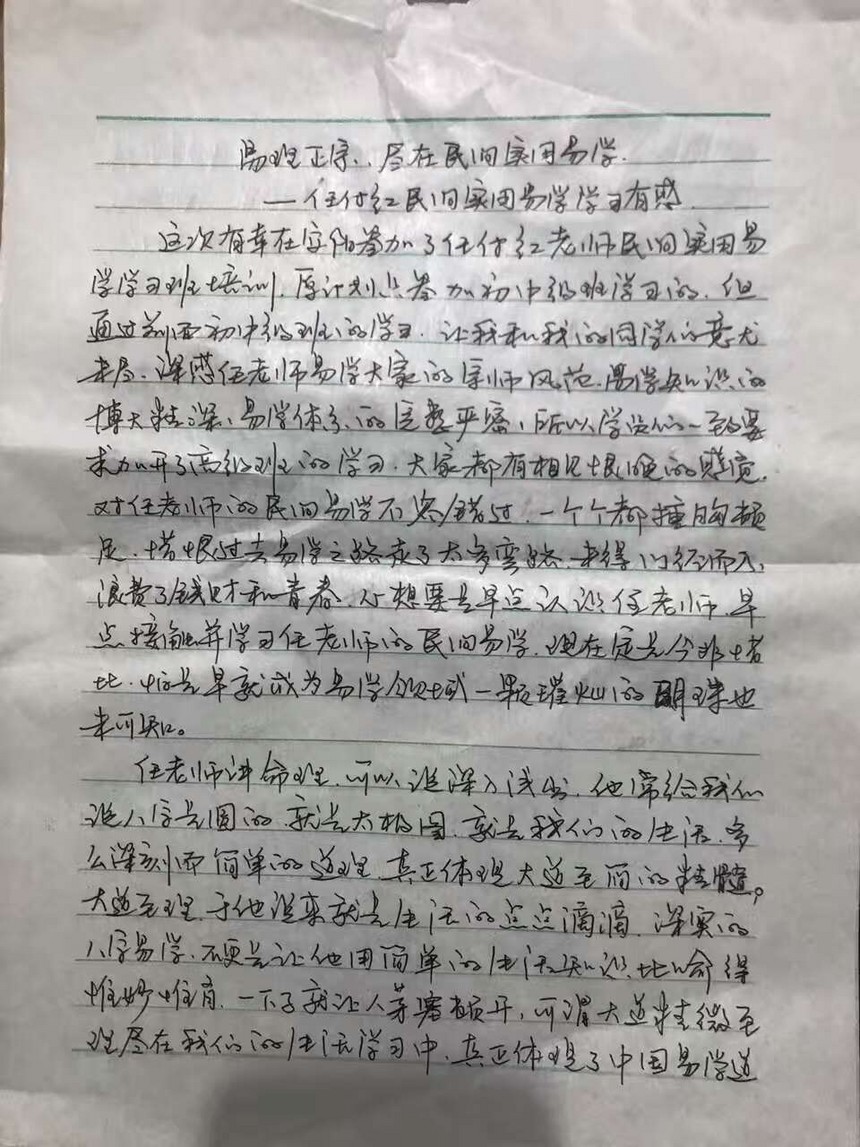 易理正宗、尽在民间实用易学.
——任付红民间实用易学学习有感
这次有幸在安阳参加了任付红老师民间实用易
学学习班培训，原计划只参加初中级班学习的，但
通过前面初中级班的学习，让我和我的同学们意犹
未尽，深感任老师易学大家的宗师风范，易学知识的
博大精深、易学体系的完整严密，所以学员们一致要
求加开了高级班的学习，大家都有相见恨晚的感觉，
对任老师的民间易学不容错过，一个个都捶胸顿
足，惜恨过去易学之路走了太多弯路，未得门径而入，
浪费了钱财和青春，心想要是早点认识任老师，早
点接触并学习任老师的民间易学，现在定是今非昔
比，怕是早就成为易学领域一颗璀灿的明珠也
未可知。
任老师讲命理，可以说深入浅出，他常给我们
说八字是圆的，就是太极图，就是我们的生活，多
么深刻而简单的道理，真正体现大道至简的精髓。
大道至理，于他说来就是生活的点点滴滴，深奥的
八字易学，不更是让他用简单的生活知识，比喻得
惟妙惟肖，一下子就让人茅塞顿开，可谓大道精微至
理尽在我们的生活学习中，真正体现了中国易学道